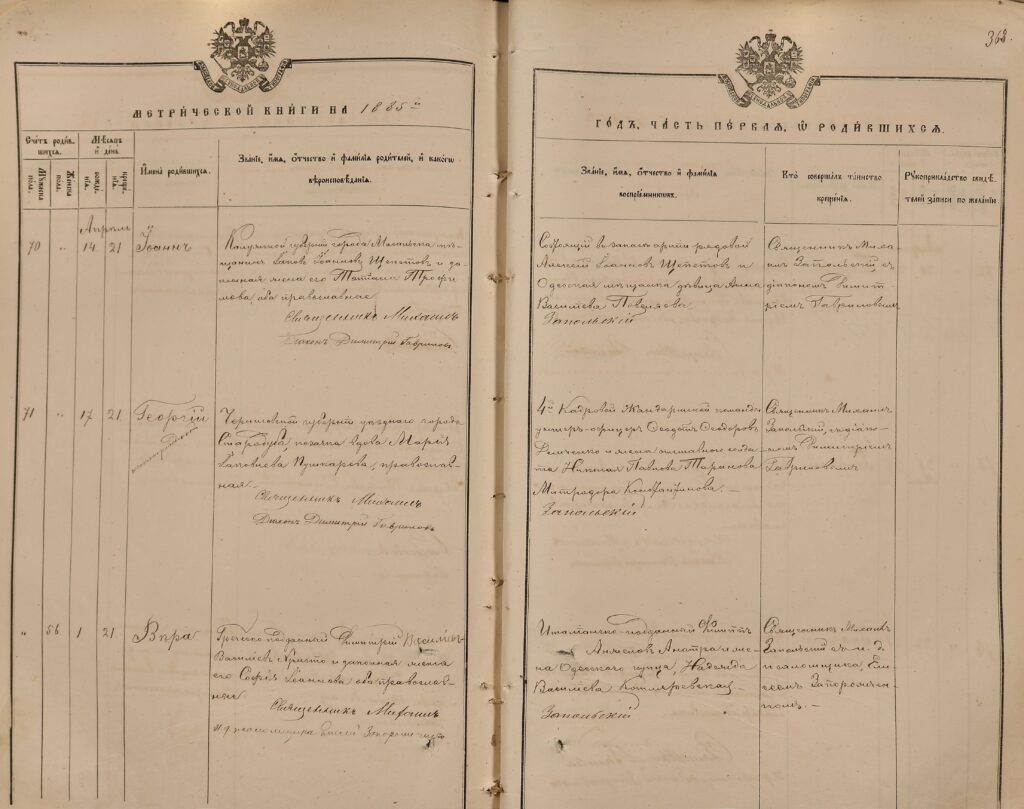 368.
МЕТРИЧЕСКОЙ КНИГИ НА 1885й
ГОДЪ, ЧАСТЬ ПЕРВАЯ, Ѡ РОДИВШИХСЯ.
Счетъ родившихся.
Мужска пола.
Женска пола.
Мѣсяцъ и день
рожденія.
крещенія.
Имена родившихся.
Званіе, имя, отчество и фамилія родителей, и какого
вѣроисповѣданія.
Званіе, имя, отчество и фамилія
воспріемниковъ.
Кто совершалъ таинство
крещенія.
Рукоприкладство свидѣтелей записи по желанію
Апрѣль
70 " 14 21 Іоаннъ
Калужской губерніи города Мосальска мѣ-
щанинъ Іаковъ Іоанновъ Щепетовъ и за-
конная жена его Татіана Трофи-
мова оба православные
Священникъ Михаилъ
Діаконъ Димитрій Гавриловъ.
Состоящій въ запасѣ арміи рядовой
Алексѣй Іоанновъ Щепетовъ и
Одесская мѣщанка дѣвица Анна
Васильева
Запольскій
Священникъ Миха-
илъ Запольскій съ
діакономъ Димит-
ріемъ Гавриловымъ
71 " 17 21 Георгій
Черниговской губерніи уѣзднаго города
Стародуба, вдова Марія
Іаковлева Пушкарова, православ-
ная.
Священникъ Михаилъ
Діаконъ Димитрій Гавриловъ
4й Кадровой Жандармской команды
унтеръ-офицеръ Ѳеодотъ Ѳеодоровъ
и жена отставного солда-
та Николая Павлова Таранова
Митродора Константинова.
Запольскій
Священникъ Михаилъ
Запольскій, съ діако-
номъ Димитріемъ
Гавриловымъ
" 56 1 21 Вѣра
Греческо-подданный Димитрій
Васильевъ Христо и законная жена
его Софія Іоаннова оба православ-
ные
Священникъ Михаилъ
И. д. псаломщика
Итальянско-подданный
Анжеловъ Анатра и же-
на Одесского купца, Надежда
Васильева Котляревская
Запольскій
Священникъ Михаилъ
Запольскій съ и. д.
псаломщика,